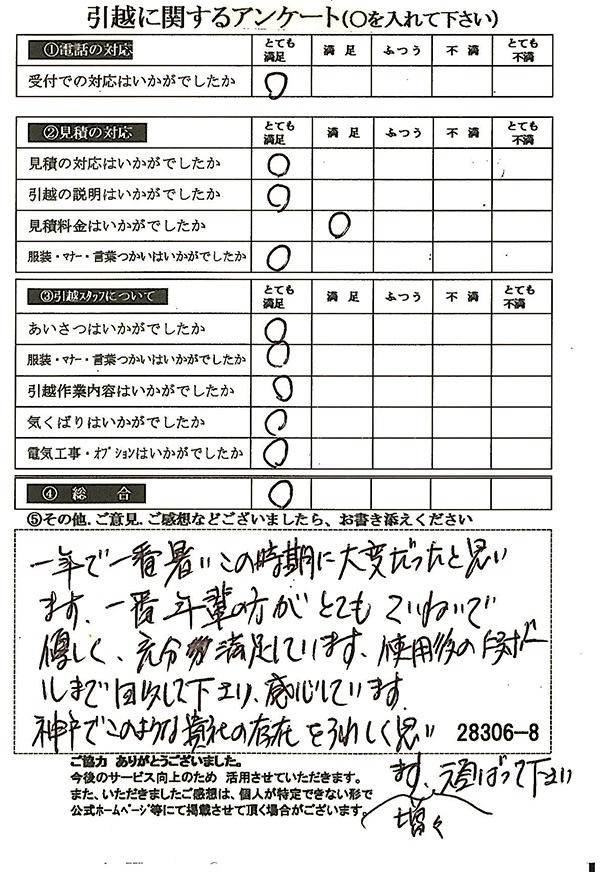 引越に関するアンケート(〇を入れて下さい)
①電話の対応 とても満足 満足 ふつう 不満 とても不満
受付での対応はいかがでしたか
②見積の対応 とても満足 満足 ふつう 不満 とても不満
見積の対応はいかがでしたか
引越の説明はいかがでしたか
見積料金はいかがでしたか
服装・マナー・言葉つかいはいかがでしたか
③引越スタッフについて とても満足 満足 ふつう 不満 とても不満
あいさつはいかがでしたか
服装・マナー・言葉つかいはいかがでしたか
引越作業内容はいかがでしたか
気くばりはいかがでしたか
電気工事・オプションはいかがでしたか
④ 総 合
⑤その他.ご意見.ご感想などございましたら、お書き添えください
一年で一番暑いこの時期に大変だったと思い
ます、一番年輩の方がとてもていねいで
優しく、充分満足しています、使用多のダンボー
ルまで回収して下さり、感じています
神戸でこのような貴社の存在をうれしく思い
28306-8
ます、頑ばって下さい
増々
ご協力 ありがとうございました。
今後のサービス向上のため 活用させていただきます。
また、いただきましたご感想は、個人が特定できない形で
公式ホームページ等にて掲載させて頂く場合がございます。